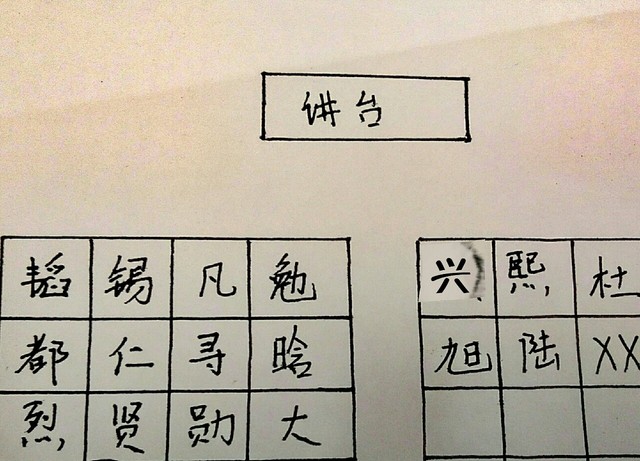 讲台
韬 锡 凡 勉 兴 熙 杜
都 仁 寻 晗 旭 陆 XX
烈 贤 勋 大